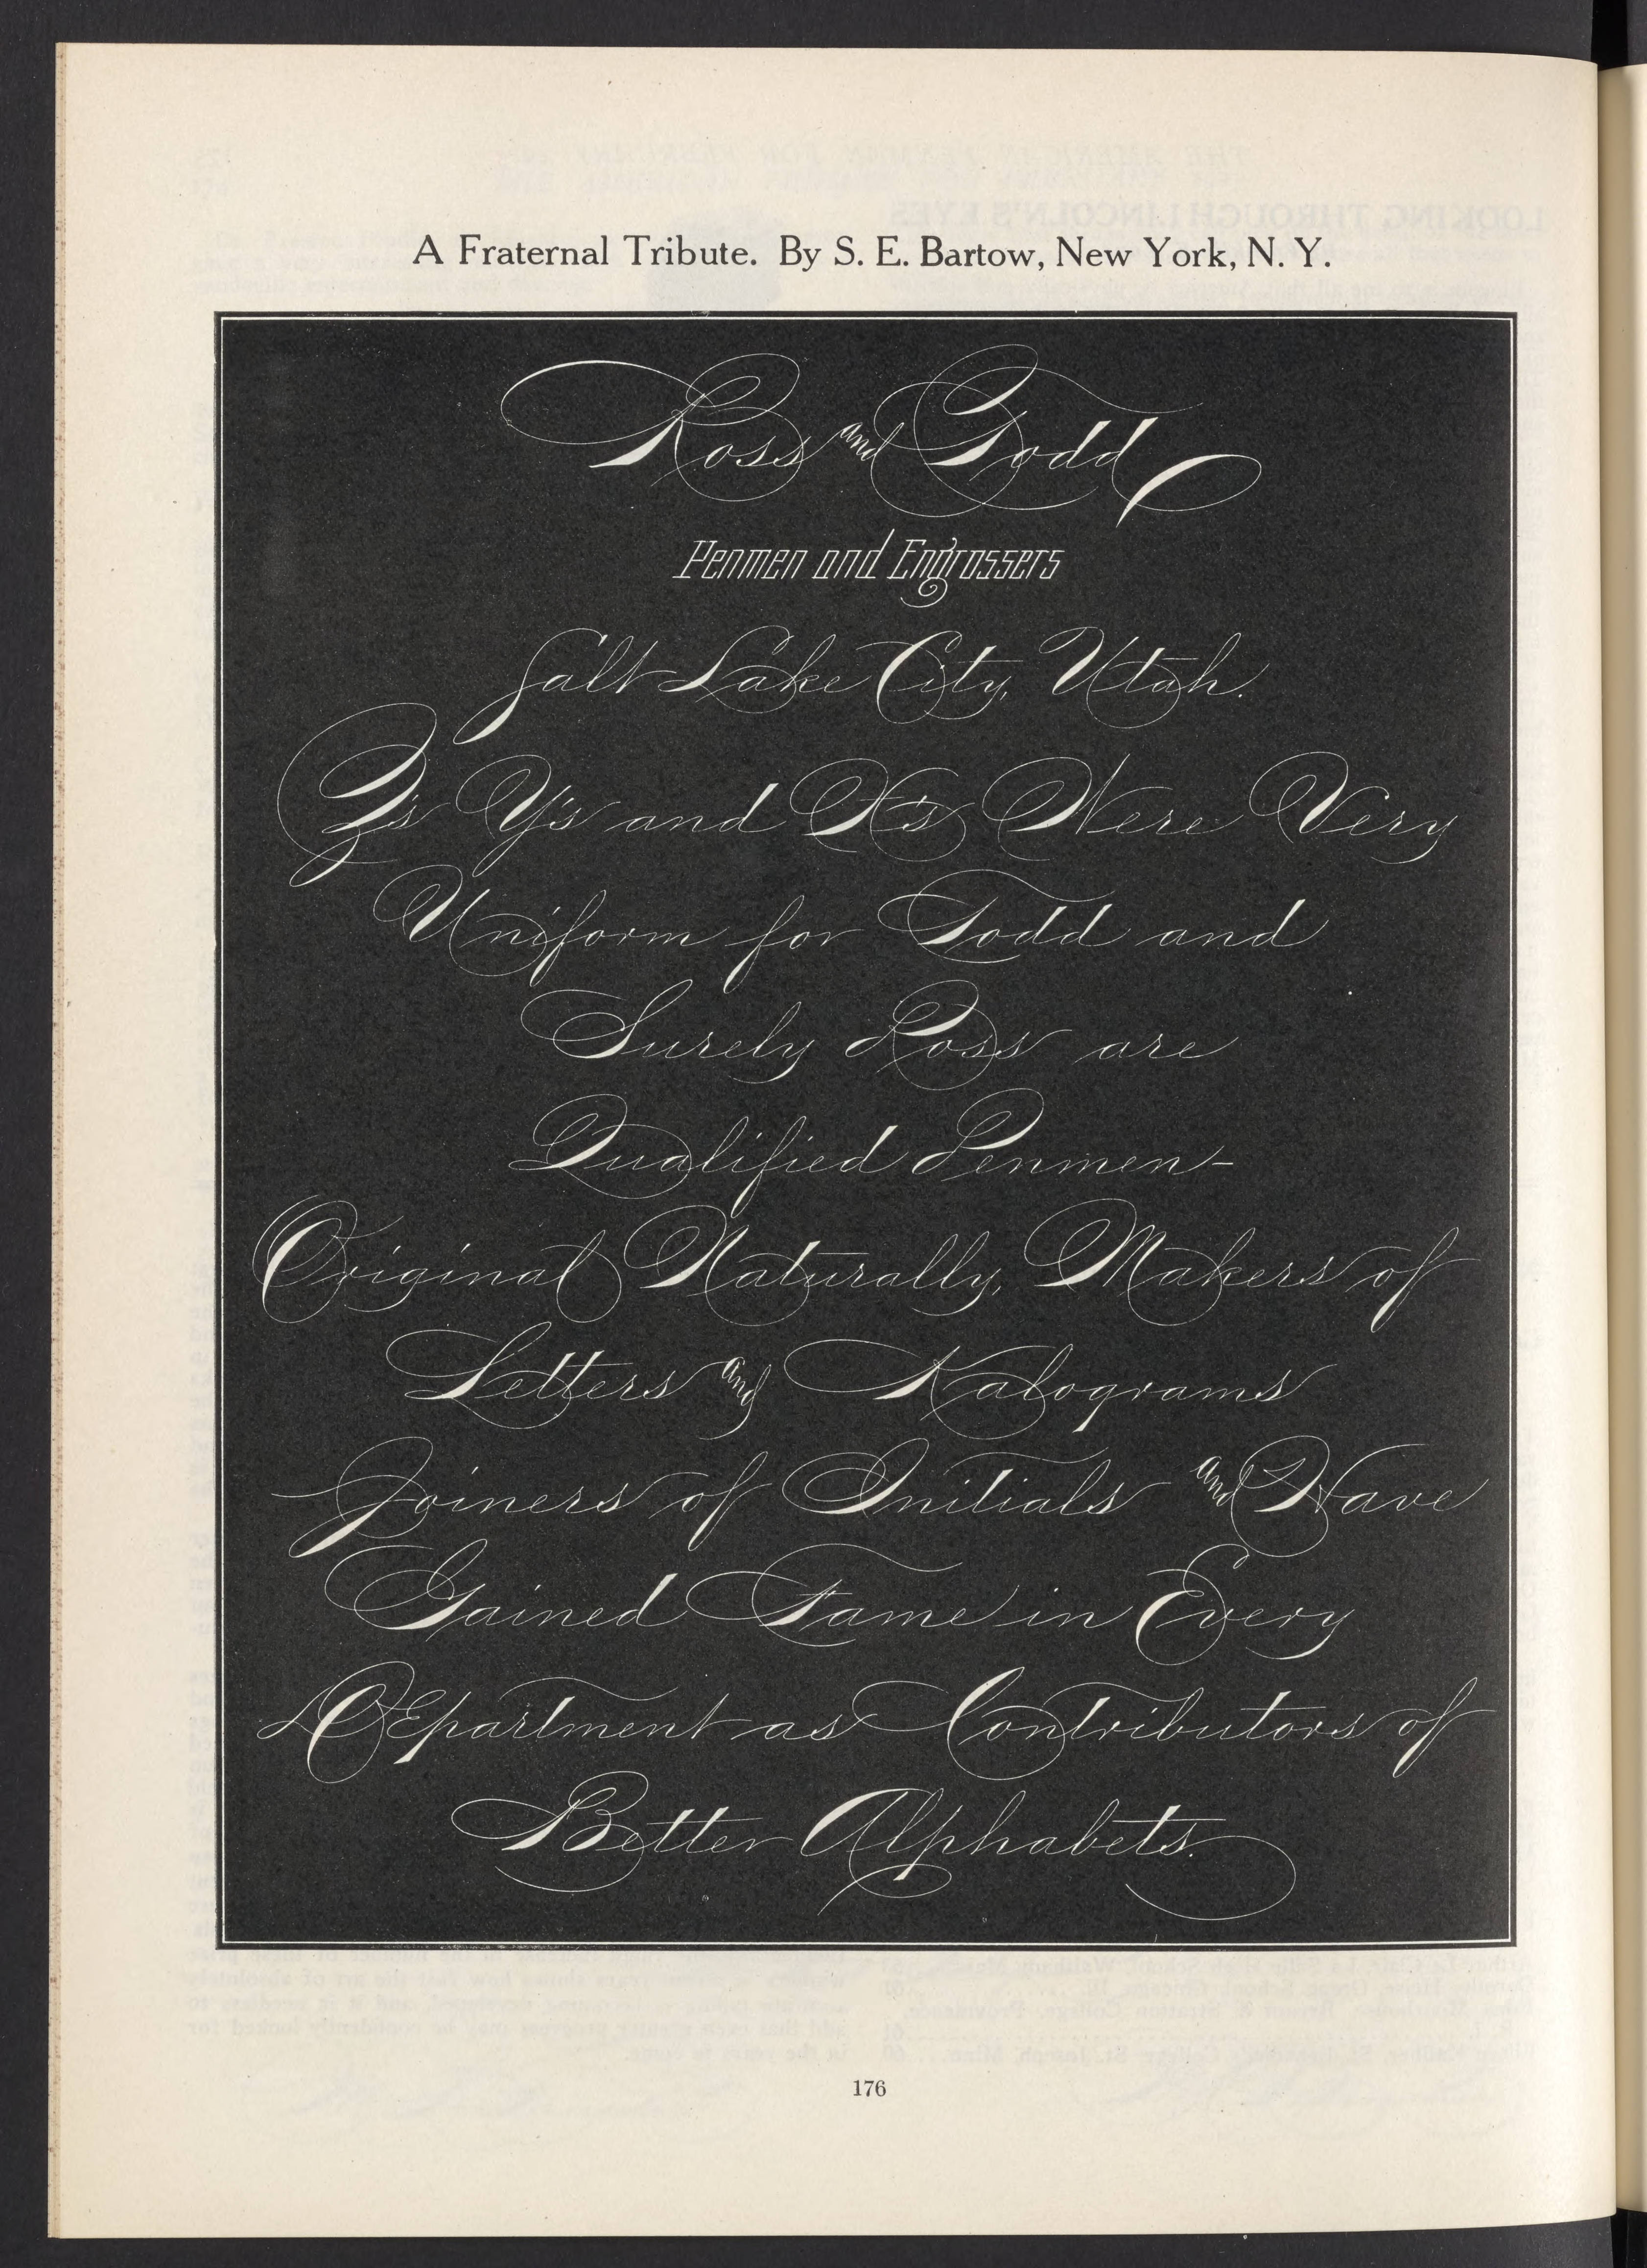 A Fraternal Tribute. By S. E. Bartow, New York, N. Y.
Ross and Todd
Penmen and Engrossers
Salt Lake City, Utah.
Z's Y's and X's Were Very
Uniform for Todd and
Surely Ross are
Qualified Penmen-
Original Naturally, Makers of
Letters and Kalograms
Joiners of Initials and Have
Gained Fame in Every
DEpartment as Contributors of
Better Alphabets.
176